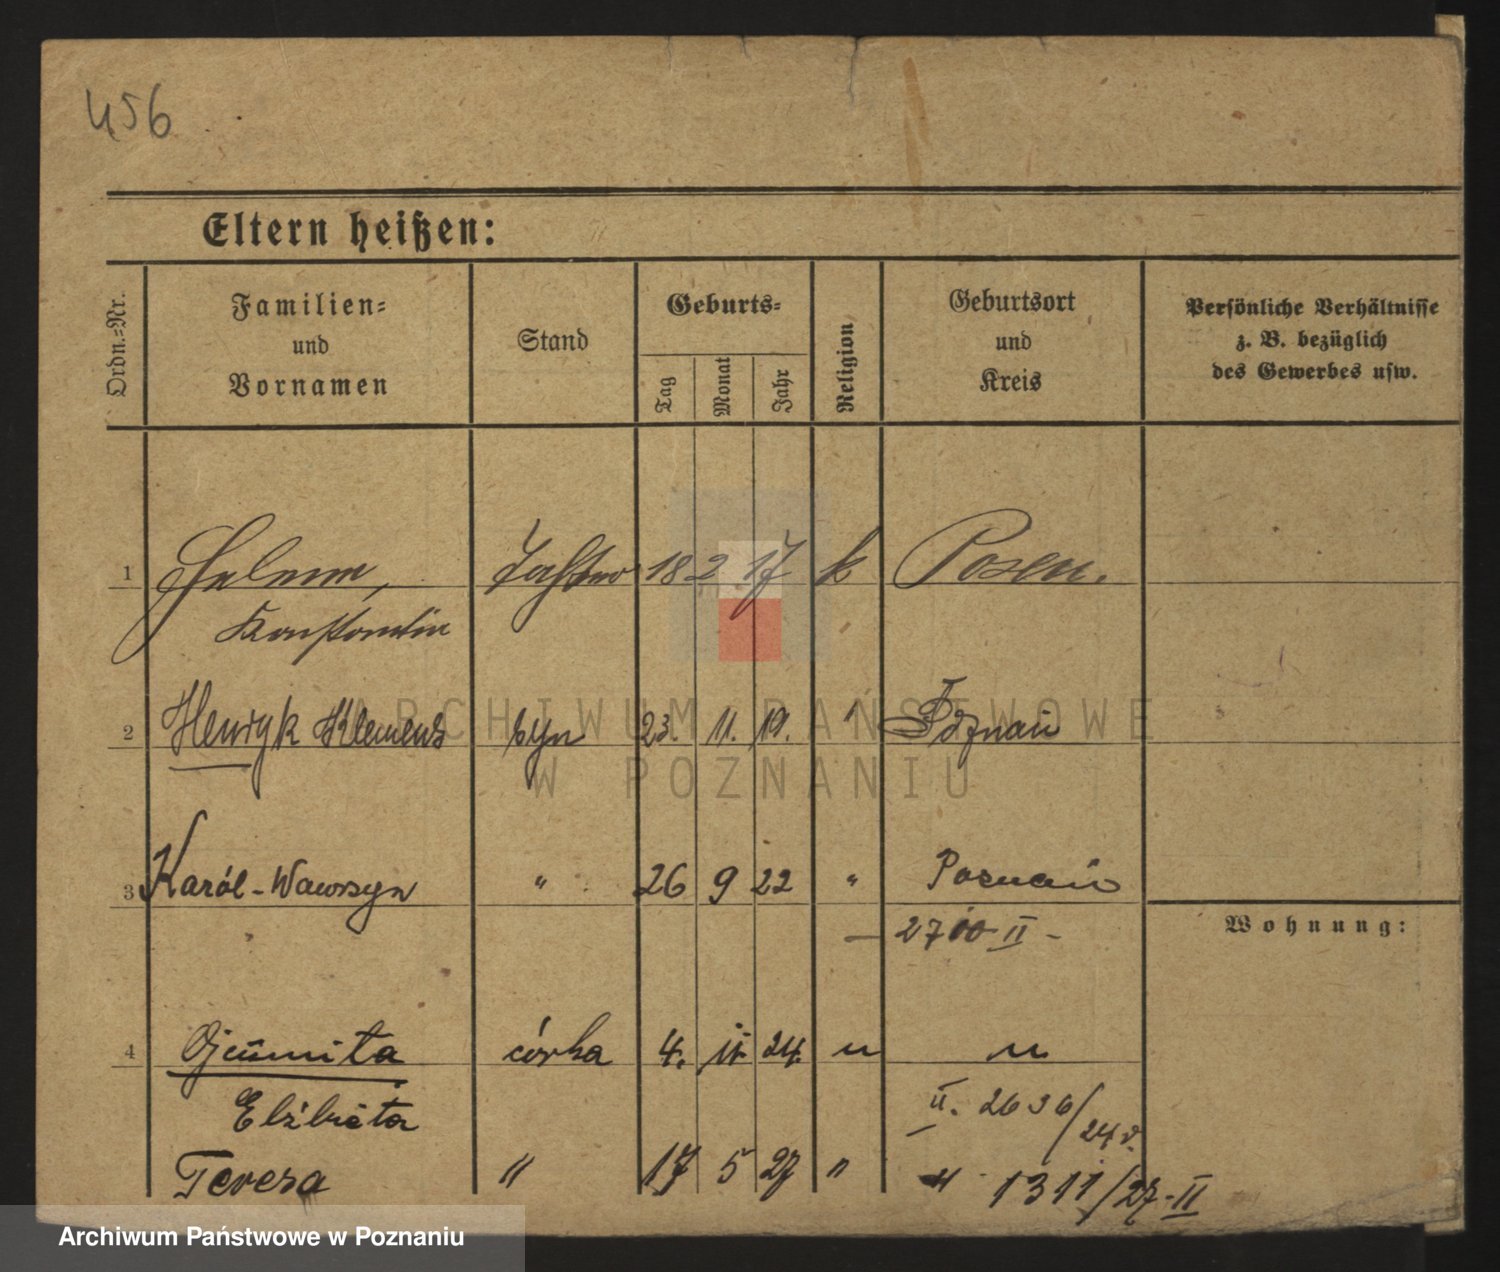 456
Eltern heißen:
Ordn.=Nr.
Familien=
und
Vornamen
Stand
Geburts=
Tag
Monat
Jahr
Religion
Geburtsort
und
Kreis
Persönliche Verhältnisse
z. B. bezüglich
des Gewerbes usw.
1 Tochter 18 2 17 k Posen.
2 Henryk Klemens syn 23. 11. 19. Poznań
3 Karól-Wawrzyn " 26 9 22 " Poznań
II -
Wohnung:
4 córka 4. 11. 24.
Elżbieta II. 2636/24 r.
Teresa " 17 5 27 " " 1311/27-II
ARCHIWUM PAŃSTWOWE
W POZNANIU
Archiwum Państwowe w Poznaniu